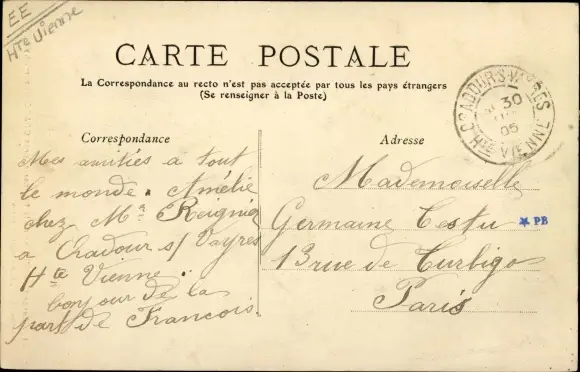 EE
Hte Vienne
CARTE POSTALE
La Correspondance au recto n'est pas acceptée par tous les pays étrangers
(Se renseigner à la Poste)
ORADOUR-S-VAYRES
30
05
HTE VIENNE
Correspondance
Mes amitiés a tout
le monde. Amélie
chez Mr Reignier
a Oradour s/ Vayres
Hte Vienne.
bonjour de la
part de Francois.
Adresse
Mademoiselle
Germaine Testu
PB
13 rue de Turbigo
Paris